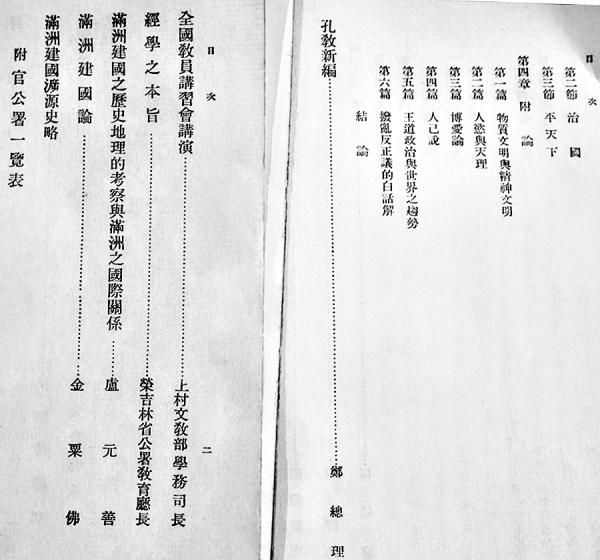 目次
第二節 治國
第三節 平天下
第四章 附論
第一篇 物質文明與精神文明
第二篇 人慾與天理
第三篇 博愛論
第四篇 人己說
第五篇 王道政治與世界之趨勢
第六篇 撥亂反正議的白話解
結論
孔教新編……鄭總理
目次 二
全國教員講習會講演……上村文教部學務司長
經學之本旨……榮吉林省公署教育廳長
滿洲建國之歷史地理的考察與滿洲之國際關係……盧元善
滿洲建國論……金粟佛
滿洲建國溯源史略
附官公署一覽表